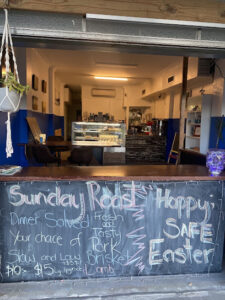 Sunday Roast
Dinner Solved
your choice of
Slow and Low
$10 - $15
Fresh
and
Tasty
Pork
Brisket
Lamb
Happy,
SAFE
Easter